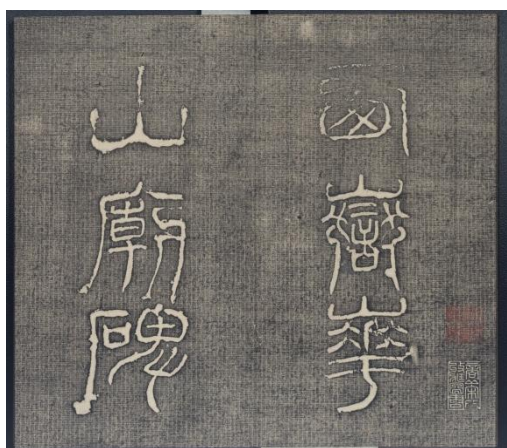 西嶽華
山廟碑